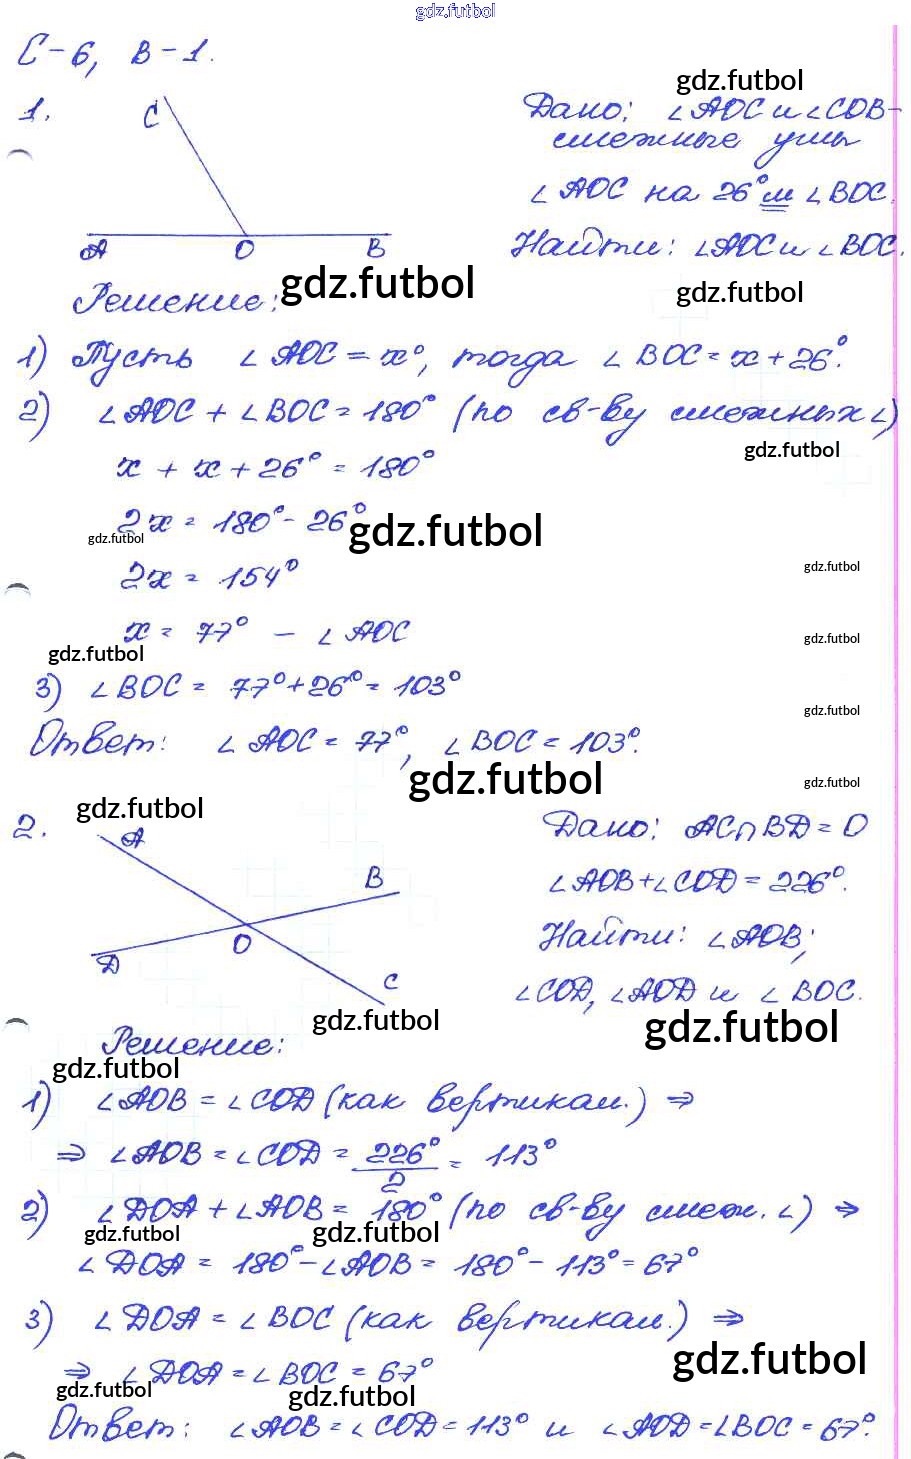 gdz.futbol
С-6, В-1.
gdz.futbol
1.
C
A O B
Дано: ∠AOC и ∠COB-
смежные углы
∠AOC на 26° м ∠BOC.
Найти: ∠AOC и ∠BOC.
gdz.futbol
gdz.futbol
Решение:
1) Пусть ∠AOC = x°, тогда ∠BOC = x + 26°.
2) ∠AOC + ∠BOC = 180° (по св-ву смежных ∠)
gdz.futbol
x + x + 26° = 180°
2x = 180° - 26°
gdz.futbol
gdz.futbol
gdz.futbol
2x = 154°
x = 77° - ∠AOC
gdz.futbol
gdz.futbol
3) ∠BOC = 77° + 26° = 103°
gdz.futbol
Ответ: ∠AOC = 77°, ∠BOC = 103°.
gdz.futbol
gdz.futbol
gdz.futbol
2.
A
B
O
D
C
Дано: AC∩BD = O
∠AOB + ∠COD = 226°.
Найти: ∠AOB;
∠COD, ∠AOD и ∠BOC.
gdz.futbol
gdz.futbol
Решение:
gdz.futbol
1) ∠AOB = ∠COD (как вертикал.) ⇒
⇒ ∠AOB = ∠COD = 226°/2 = 113°
2) ∠DOA + ∠AOB = 180° (по св-ву смеж. ∠) ⇒
gdz.futbol
gdz.futbol
∠DOA = 180° - ∠AOB = 180° - 113° = 67°
3) ∠DOA = ∠BOC (как вертикал.) ⇒
gdz.futbol
⇒ ∠DOA = ∠BOC = 67°
gdz.futbol
gdz.futbol
Ответ: ∠AOB = ∠COD = 113° и ∠AOD = ∠BOC = 67°.